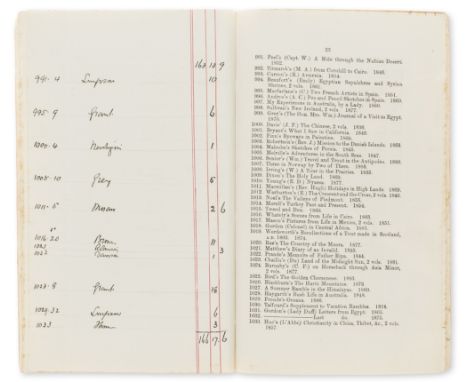 162 12 9
991. 4 Simpson 10
995. 9 Grant 6
1
1008. 10 Grey 6
1011. 2 6
1016-20 11
3
1023. 8 Grant
1029. 32 Simpson 6
1033 3
166 17 6
23
991. Peel's (Capt. W.) A Ride through the Nubian Desert.
1852.
992. (M. A.) from Cornhill to Cairo. 1846.
993. Curzon's (R.) Armenia. 1854.
994. Beaufort's (Emily) Egyptian Sepulchres and Syrian
Shrines, 2 vols. 1861.
995. Macfarlane's (C.) Two French Artists in Spain. 1851.
997. My Experiences in Australia, by a Lady. 1860.
998. New Ireland, 2 vols. 1877.
999. Grey's (The Hon. Mrs. Wm.) Journal of a Visit to Egypt.
1870.
1000. Davis' (J. F.) The Chinese, 2 vols. 1836.
1001. Bryant's What I Saw in California. 1849.
1002. Finn's Byeways in Palestine. 1868.
1003. Robertson's (Rev. J.) Mission to the Danish Islands. 1863.
1004. Malcolm's Sketches of Persia. 1845.
1005. Melville's Adventures in the South Seas. 1847.
1006. Senior's (Wm.) Travel and Trout in the Antipodes. 1880.
1007. Three in Norway by Two of Them. 1882.
1008. Irving's (W.) A Tour in the Prairies. 1835.
1009. Dixon's The Holy Land. 1869.
1010. Young's (E. D.) Nyassa. 1877.
1011. Macmillan's (Rev. Hugh) Holidays in High Lands. 1869.
1012. Warburton's (E.) The Crescent and the Cross, 2 vols. 1846.
1013. Noel's The Valleys of Piedmont. 1855.
1014. Morell's Turkey Past and Present. 1854.
1015. Tweed and Don. 1860.
1016. Whately's Scenes from Life in Cairo. 1883.
1017. Mason's Pictures from Life in Mexico, 2 vols. 1851.
1018. Gordon (Colonel) in Central Africa. 1881.
1019. Wordsworth's Recollections of a Tour made in Scotland,
A.D. 1803. 1874.
1020. Rae's The Country of the Moors. 1877.
1021. Matthew's Diary of an Invalid. 1835.
1022. Prandi's Memoirs of Father Ripa. 1844.
1023. Chaillu's (Du) Land of the Midnight Sun, 2 vols. 1881.
1024. Burnaby's (C. F.) On Horseback through Asia Minor,
2 vols. 1877.
1025. Bird's The Golden Chersonese. 1883.
1026. Blackburn's The Harz Mountains. 1873.
1027. A Summer Ramble in the Himalayas. 1860.
1028. Haygarth's Bush Life in Australia. 1848.
1029. Froude's Oceana. 1886.
1030. Talfourd's Supplement to Vacation Rambles. 1854.
1031. Gordon's (Lady Duff) Letters from Egypt. 1865.
1032. Last do. 1875.
1033. Huc's (L'Abbé) Christianity in China, Thibet, &c., 2 vols.
1857